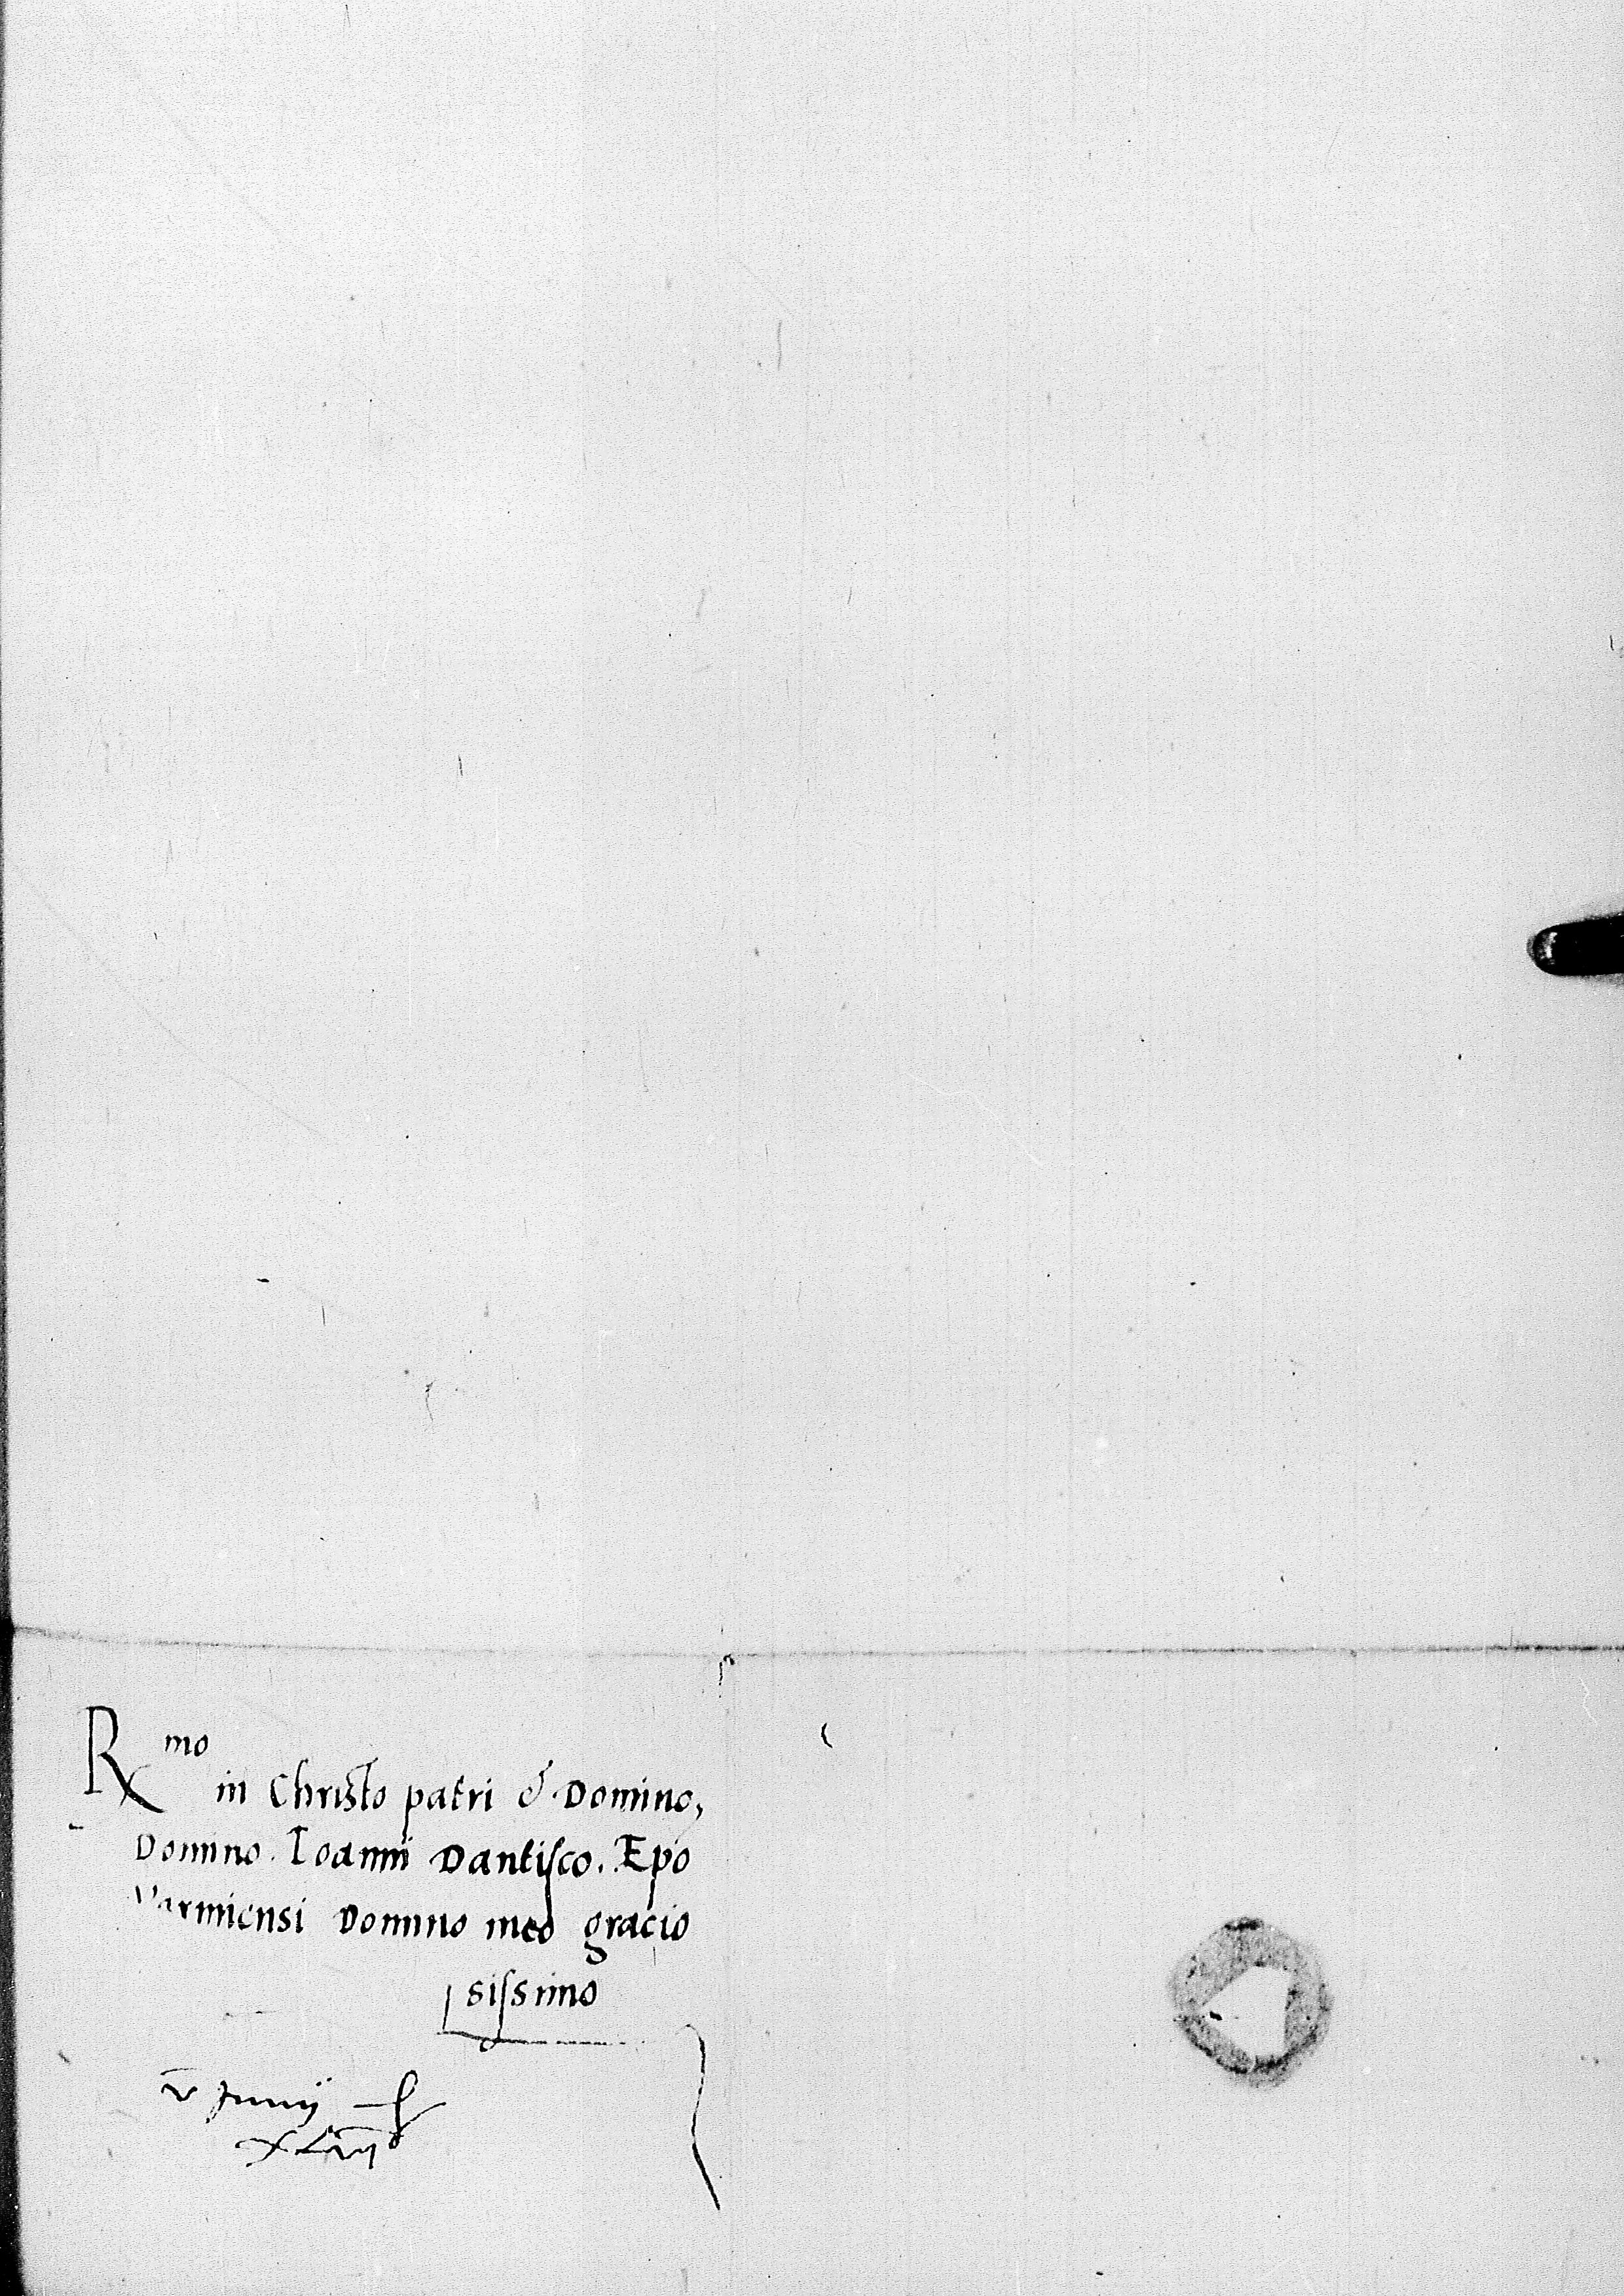 R mo
in Christo patri & Domino,
Domino. Ioanni Dantisco. Epo
Varmiensi Domino meo gracio
sissimo
v Junij
xlvij